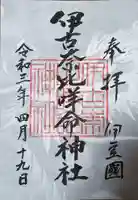 奉拝
伊豆國
伊古奈比咩命神社
令和三年四月十九日